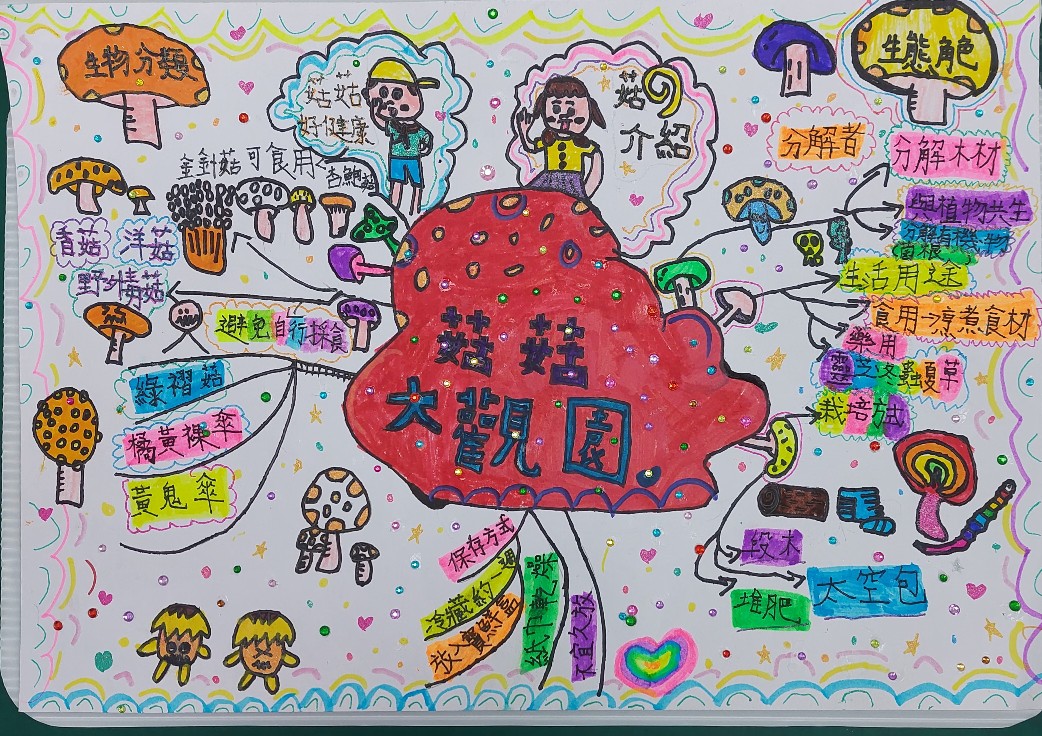 生物分類
菇菇
好健康
菇の
介紹
生態角色
分解者
分解木材
與植物共生
分解有機物
菌根
金針菇
可食用
杏鮑菇
香菇
洋菇
野外毒菇
避免自行採食
綠褶菇
橘黃裸傘
黃鬼傘
菇菇
大觀園
生活用途
食用→烹煮食材
藥用
靈芝冬蟲夏草
栽培方式
段木
太空包
堆肥
保存方式
冷藏約一週
放入保鮮盒
紙巾乾燥
不宜久放